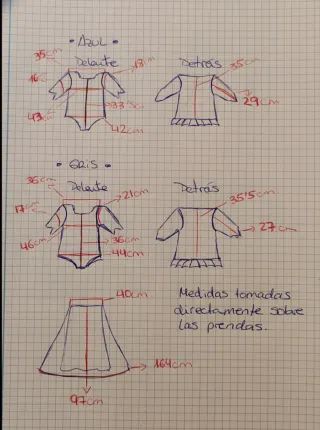 • AZUL •
Delante
Detrás
35cm
18cm
35cm
16cm
43cm
33'5cm
29cm
42cm
• GRIS •
Delante
Detrás
36cm
21cm
35'5cm
17cm
46cm
36cm
27cm
44cm
40cm
Medidas tomadas
directamente sobre
las prendas.
164cm
97cm